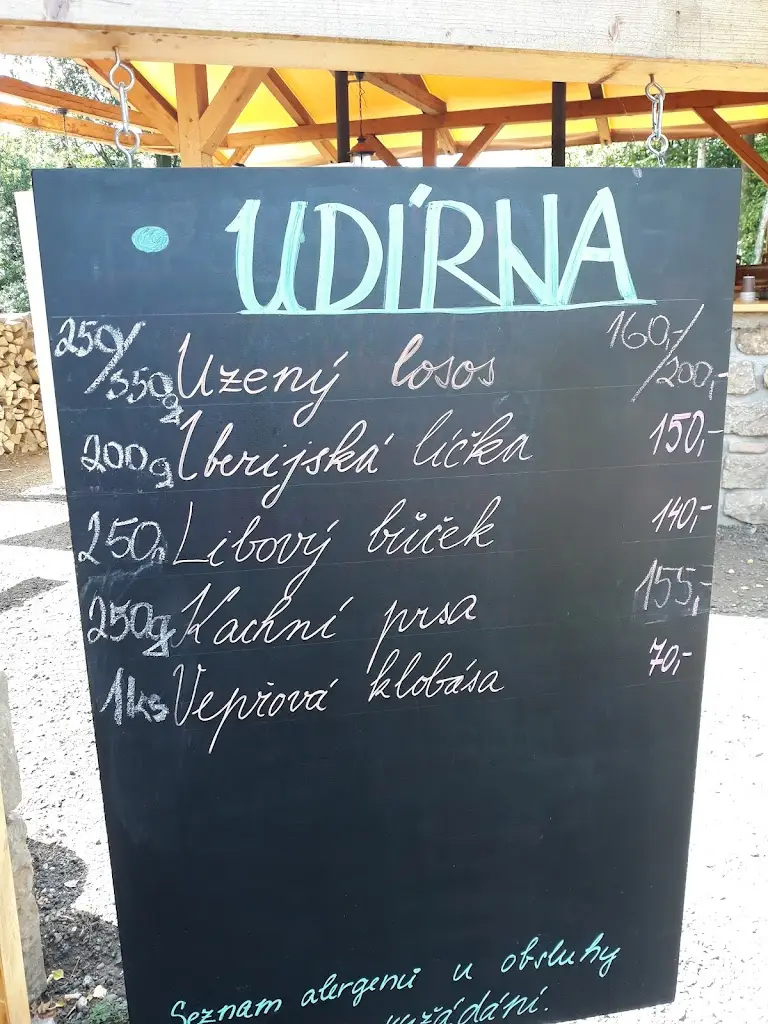 UDÍRNA
250/350g Uzený losos 160,-/200,-
200g Iberijská líčka 150,-
250g Libový bůček 140,-
250g Kachní prsa 155,-
1ks Vepřová klobása 70,-
Seznam alergenů u obsluhy
vyžádání.